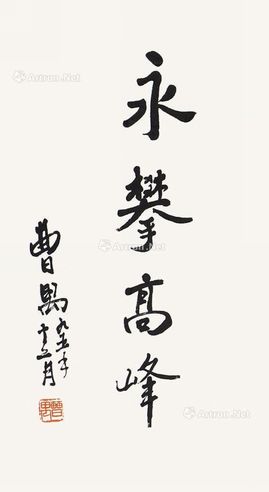 永攀高峰
曹禺 九五年
十二月
Artron.Net
Artron.Net
Artron.Net